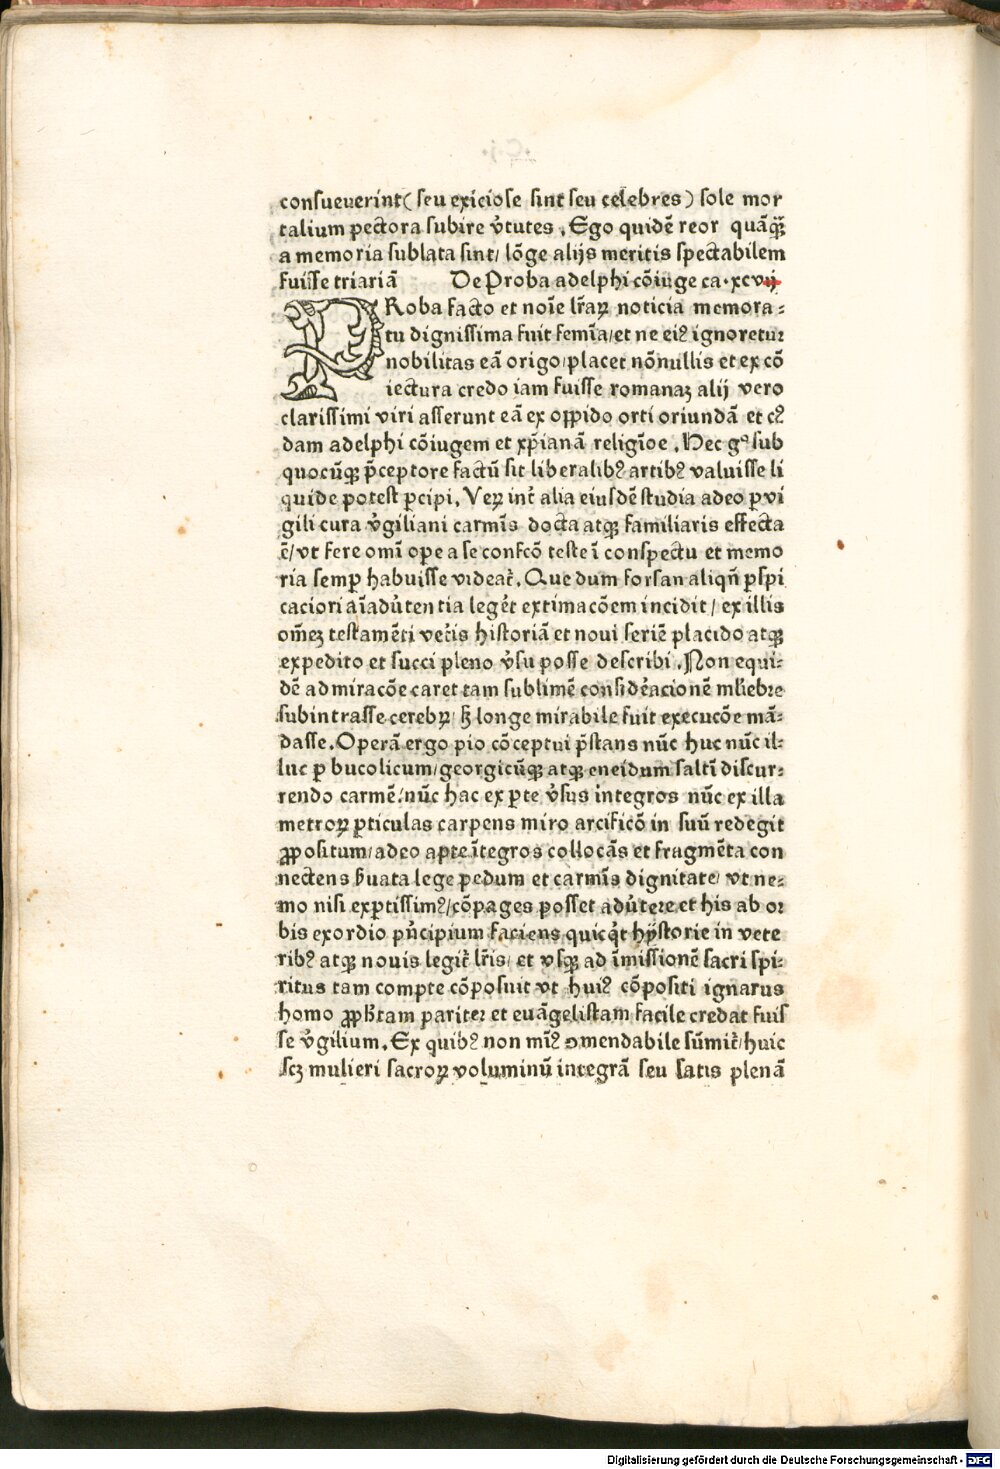 consueuerint( seu exiciose sint seu celebres ) sole mor
talium pectora subire v̓tutes . Ego quidē reor quāqꝫ
a memoria sublata sint/ lōge alijs meritis spectabilem
fuisse triariā De Proba adelphi cōiuge ca·xcvij
PRoba facto et noīe lr̄aꝝ noticia memora⸗
tu dignissima fuit femīa/et ne eiꝰ ignoretur
nobilitas eā origo/placet nōnullis et ex cō
iectura credo iam fuisse romanaꝫ alij vero
clarissimi viri asserunt eā ex oppido orti oriundā et cꝰ
dam adelphi cōiugem et xp̄ianā religiōe . Hec gͦ sub
quocūqꝫ p̄ceptore factū sit liberalibꝰ artibꝰ valuisse li
quide potest ꝑcipi. Veꝝ int̓ alia eiusdē studia adeo ꝑvi
gili cura v̓giliani carmīs docta atqꝫ familiaris effecta
ē/vt fere omī ope a se confcō teste ī conspectu et memo
ria semꝑ habuisse videat̓. Que dum forsan aliqn̄ ꝑspi
caciori aīadu̓tentia leget̓ extimacōem incidit/ ex illis
om̄eꝫ testamēti vet̓is historiā et noui seriē placido atqꝫ
expedito et succi pleno v̓su posse describi . Non equi⸗
dē admiracōe caret tam sublimē consid̓acionē mulieb̄re
subintrasse cerebꝝ/ sꝫ longe mirabile fuit execucōe mā⸗
dasse. Operā ergo pio cōceptui p̄stans nūc huc nūc il⸗
luc ꝑ bucolicum/georgicūqꝫ atqꝫ eneidum saltī discur⸗
rendo carmē/nūc hac ex ꝑte v̓sus integros nūc ex illa
metroꝝ ꝑticulas carpens miro artificō in suū redegit
ꝓpositum/adeo apte ītegros collocās et fragmēta con
nectens ẜuata lege pedum et carmīs dignitate/ vt ne⸗
mo nisi exꝑtissimꝰ/cōpages posset adu̓tere et his ab or
bis exordio pn̓cipium faciens quicqd̓ hystorie in vete
ribꝰ atqꝫ nouis legit̓ lr̄is/ et vsqꝫ ad īmissionē sacri spi⸗
ritus tam compte cōposuit vt huiꝰ cōpositi ignarus
homo ꝓph̄tam pariter et euāgelistam facile credat fuis
se v̓gilium. Ex quibꝰ non mīꝰ ꝯmendabile sūmit̓/huic
scꝫ mulieri sacroꝝ voluminū integrā seu satis plenā
Digitalisierung gefördert durch die Deutsche Forschungsgemeinschaft · DFG